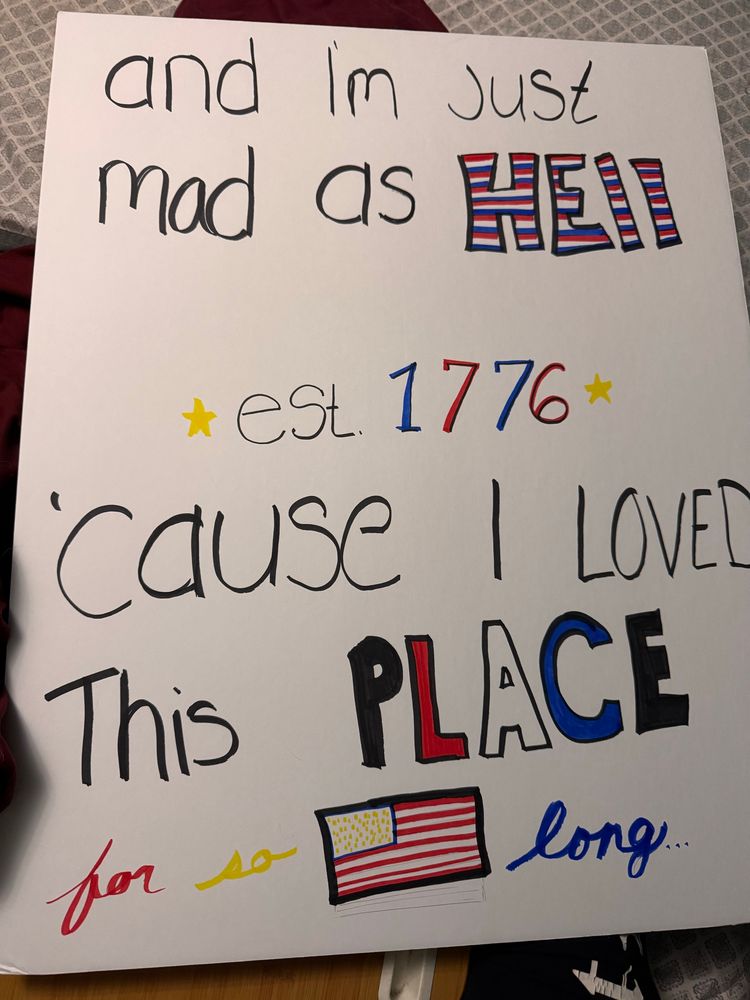 and I'm just
mad as HEll
est. 1776
'cause I LOVED
This PLACE
for so long...